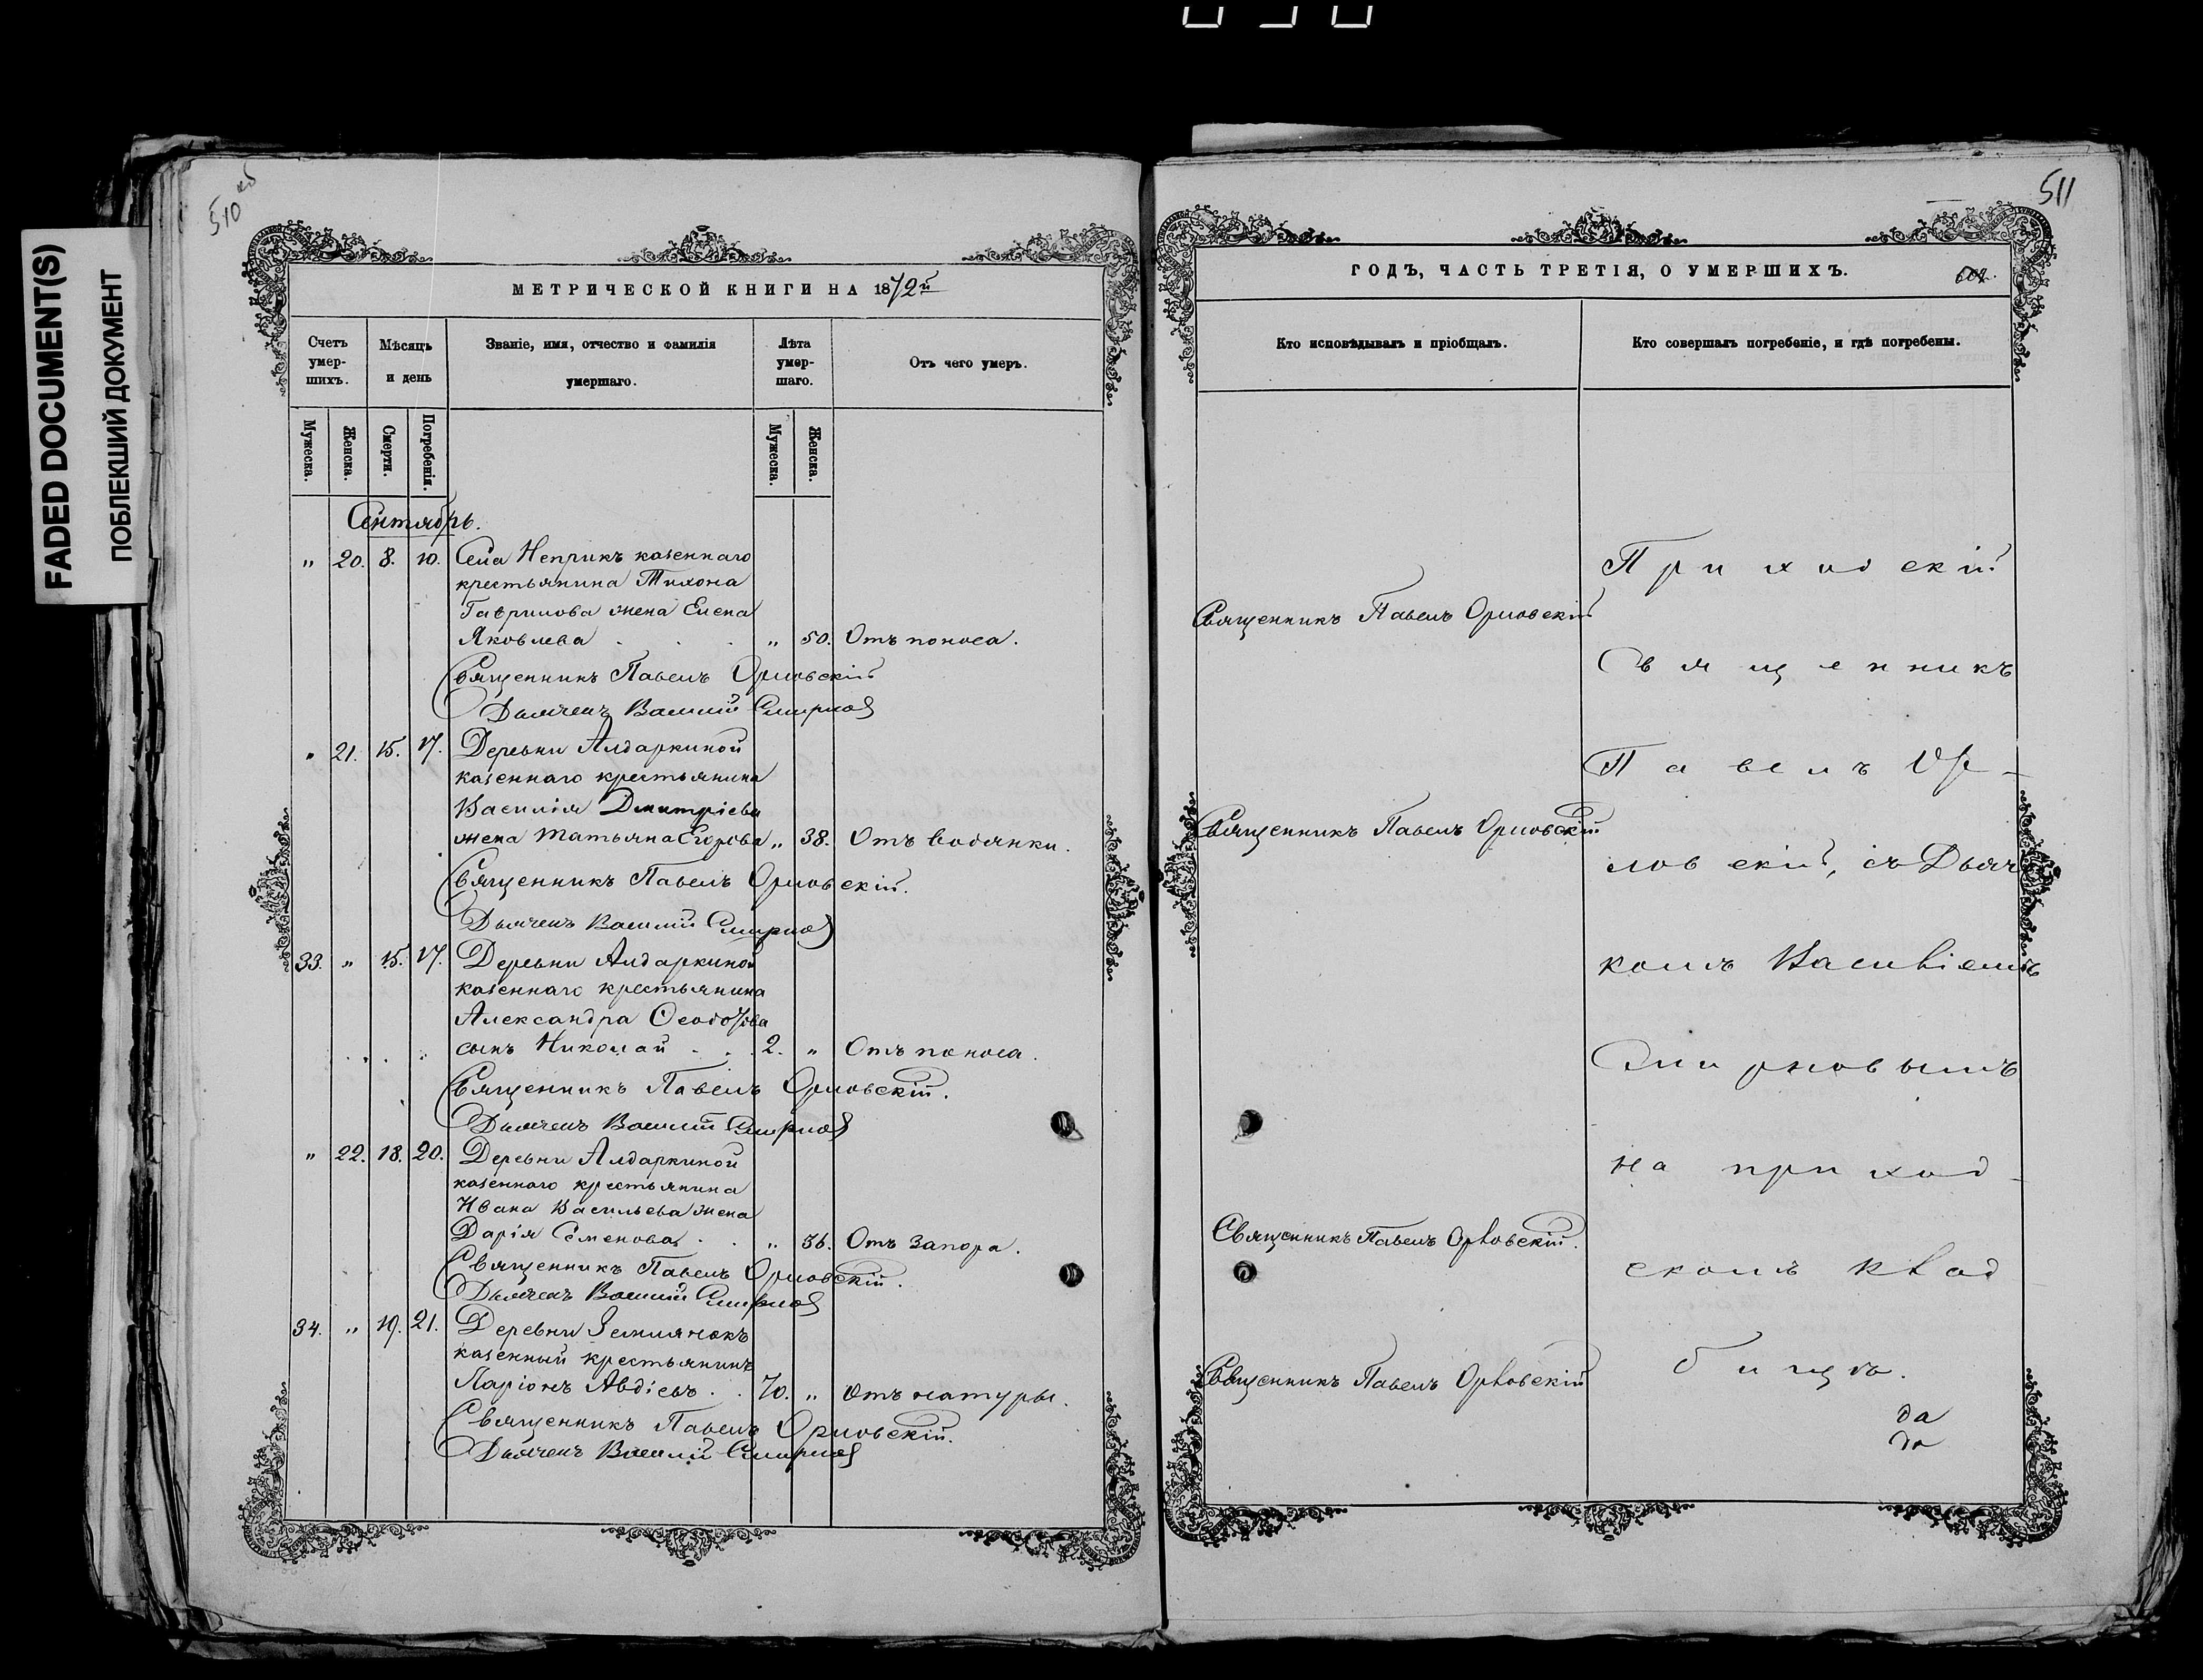 FADED DOCUMENT(S)
ПОБЛЕКШИЙ ДОКУМЕНТ
510 об
МЕТРИЧЕСКОЙ КНИГИ НА 1872й
Счетъ умер-шихъ.
Мѣсяцъ и день
Званіе, имя, отчество и фамилія умершаго.
Лѣта умер-шаго.
Отъ чего умеръ.
Мужеска.
Женска.
Смерти.
Погребенія.
Мужеска.
Женска.
Сентябрь.
" 20. 8. 10. Села Неприкъ казеннаго
крестьянина Тихона
Гаврилова жена Елена
Яковлева . . . " 50. Отъ поноса.
Священникъ Павелъ Орловскій
Дьячекъ Василій Смирновъ
" 21. 15. 17. Деревни Алдаркиной
казеннаго крестьянина
Василія Дмитріева
жена Татьяна Егорова " 38. Отъ водянки.
Священникъ Павелъ Орловскій.
Дьячекъ Василій Смирновъ
33. " 15. 17. Деревни Алдаркиной
казеннаго крестьянина
Александра Ѳеодотова
сынъ Николай . . . 2. " Отъ поноса.
Священникъ Павелъ Орловскій.
Дьячекъ Василій Смирновъ
" 22. 18. 20. Деревни Алдаркиной
казеннаго крестьянина
Ивана Васильева жена
Дарія Семенова . . " 36. Отъ запора.
Священникъ Павелъ Орловскій.
Дьячекъ Василій Смирновъ
34. " 19. 21. Деревни Землянокъ
казенный крестьянинъ
Ларіонъ Авдіевъ . . 70. " Отъ натуры.
Священникъ Павелъ Орловскій.
Дьячекъ Василій Смирновъ
511
ГОДЪ, ЧАСТЬ ТРЕТІЯ, О УМЕРШИХЪ.
Кто исповѣдывалъ и пріобщалъ.
Кто совершалъ погребеніе, и гдѣ погребены.
Священникъ Павелъ Орловскій
Священникъ Павелъ Орловскій
Священникъ Павелъ Орловскій.
Священникъ Павелъ Орловскій
Приходскій
Священникъ
Павелъ Ор-
ловскій, съ Дьяч
комъ Василіемъ
Смирновымъ
на приход-
скомъ клад
бищѣ.